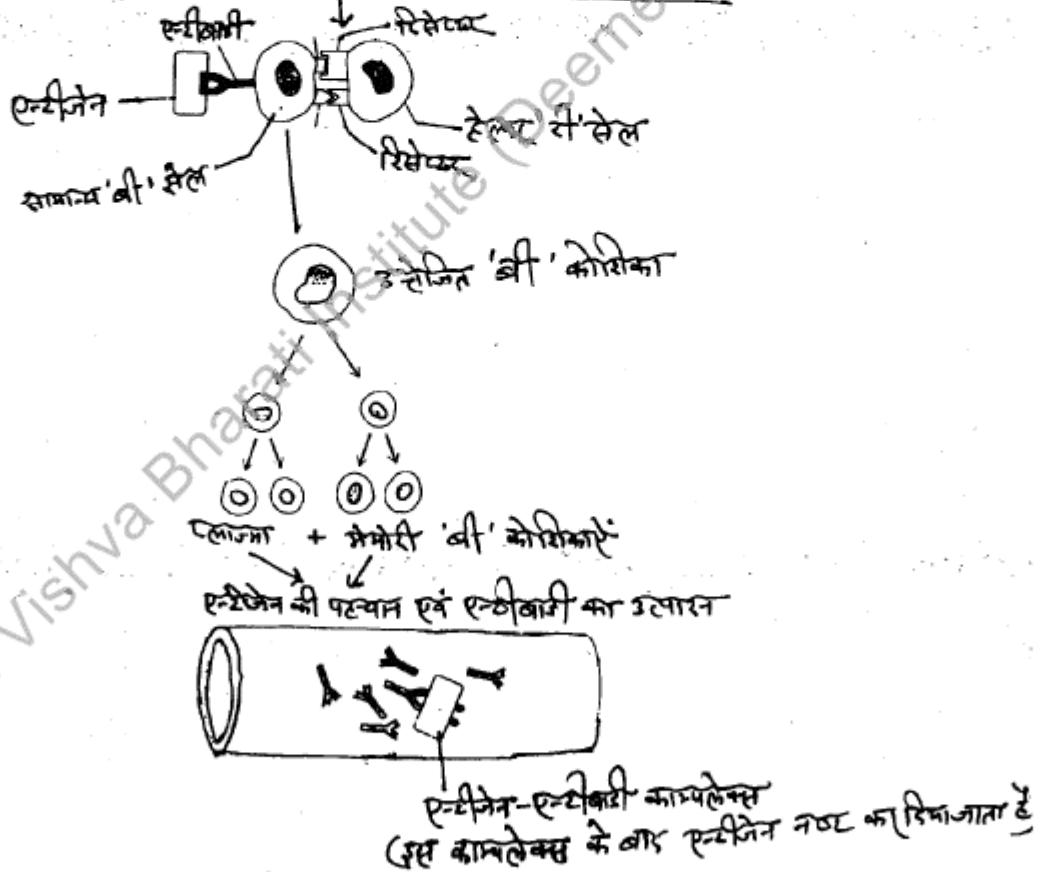 एन्टीबाडी
रिसेप्टर
एन्टीजेन
हेल्पर 'टी' सेल
रिसेप्टर
सामान्य 'बी' सेल
उत्तेजित 'बी' कोशिका
प्लाज्मा + मेमोरी 'बी' कोशिकाऐं
एन्टीजेन की पहचान एवं एन्टीबाडी का उत्पादन
एन्टीजेन-एन्टीबाडी काम्पलेक्स
(इस काम्पलेक्स के बाद एन्टीजेन नष्ट कर दिया जाता है
Vishva Bharati Institute (Deeme